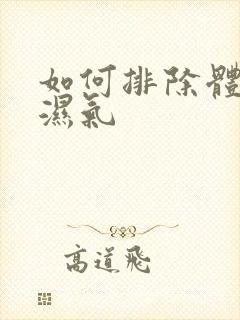 如何排除體
濕氣
高道飛